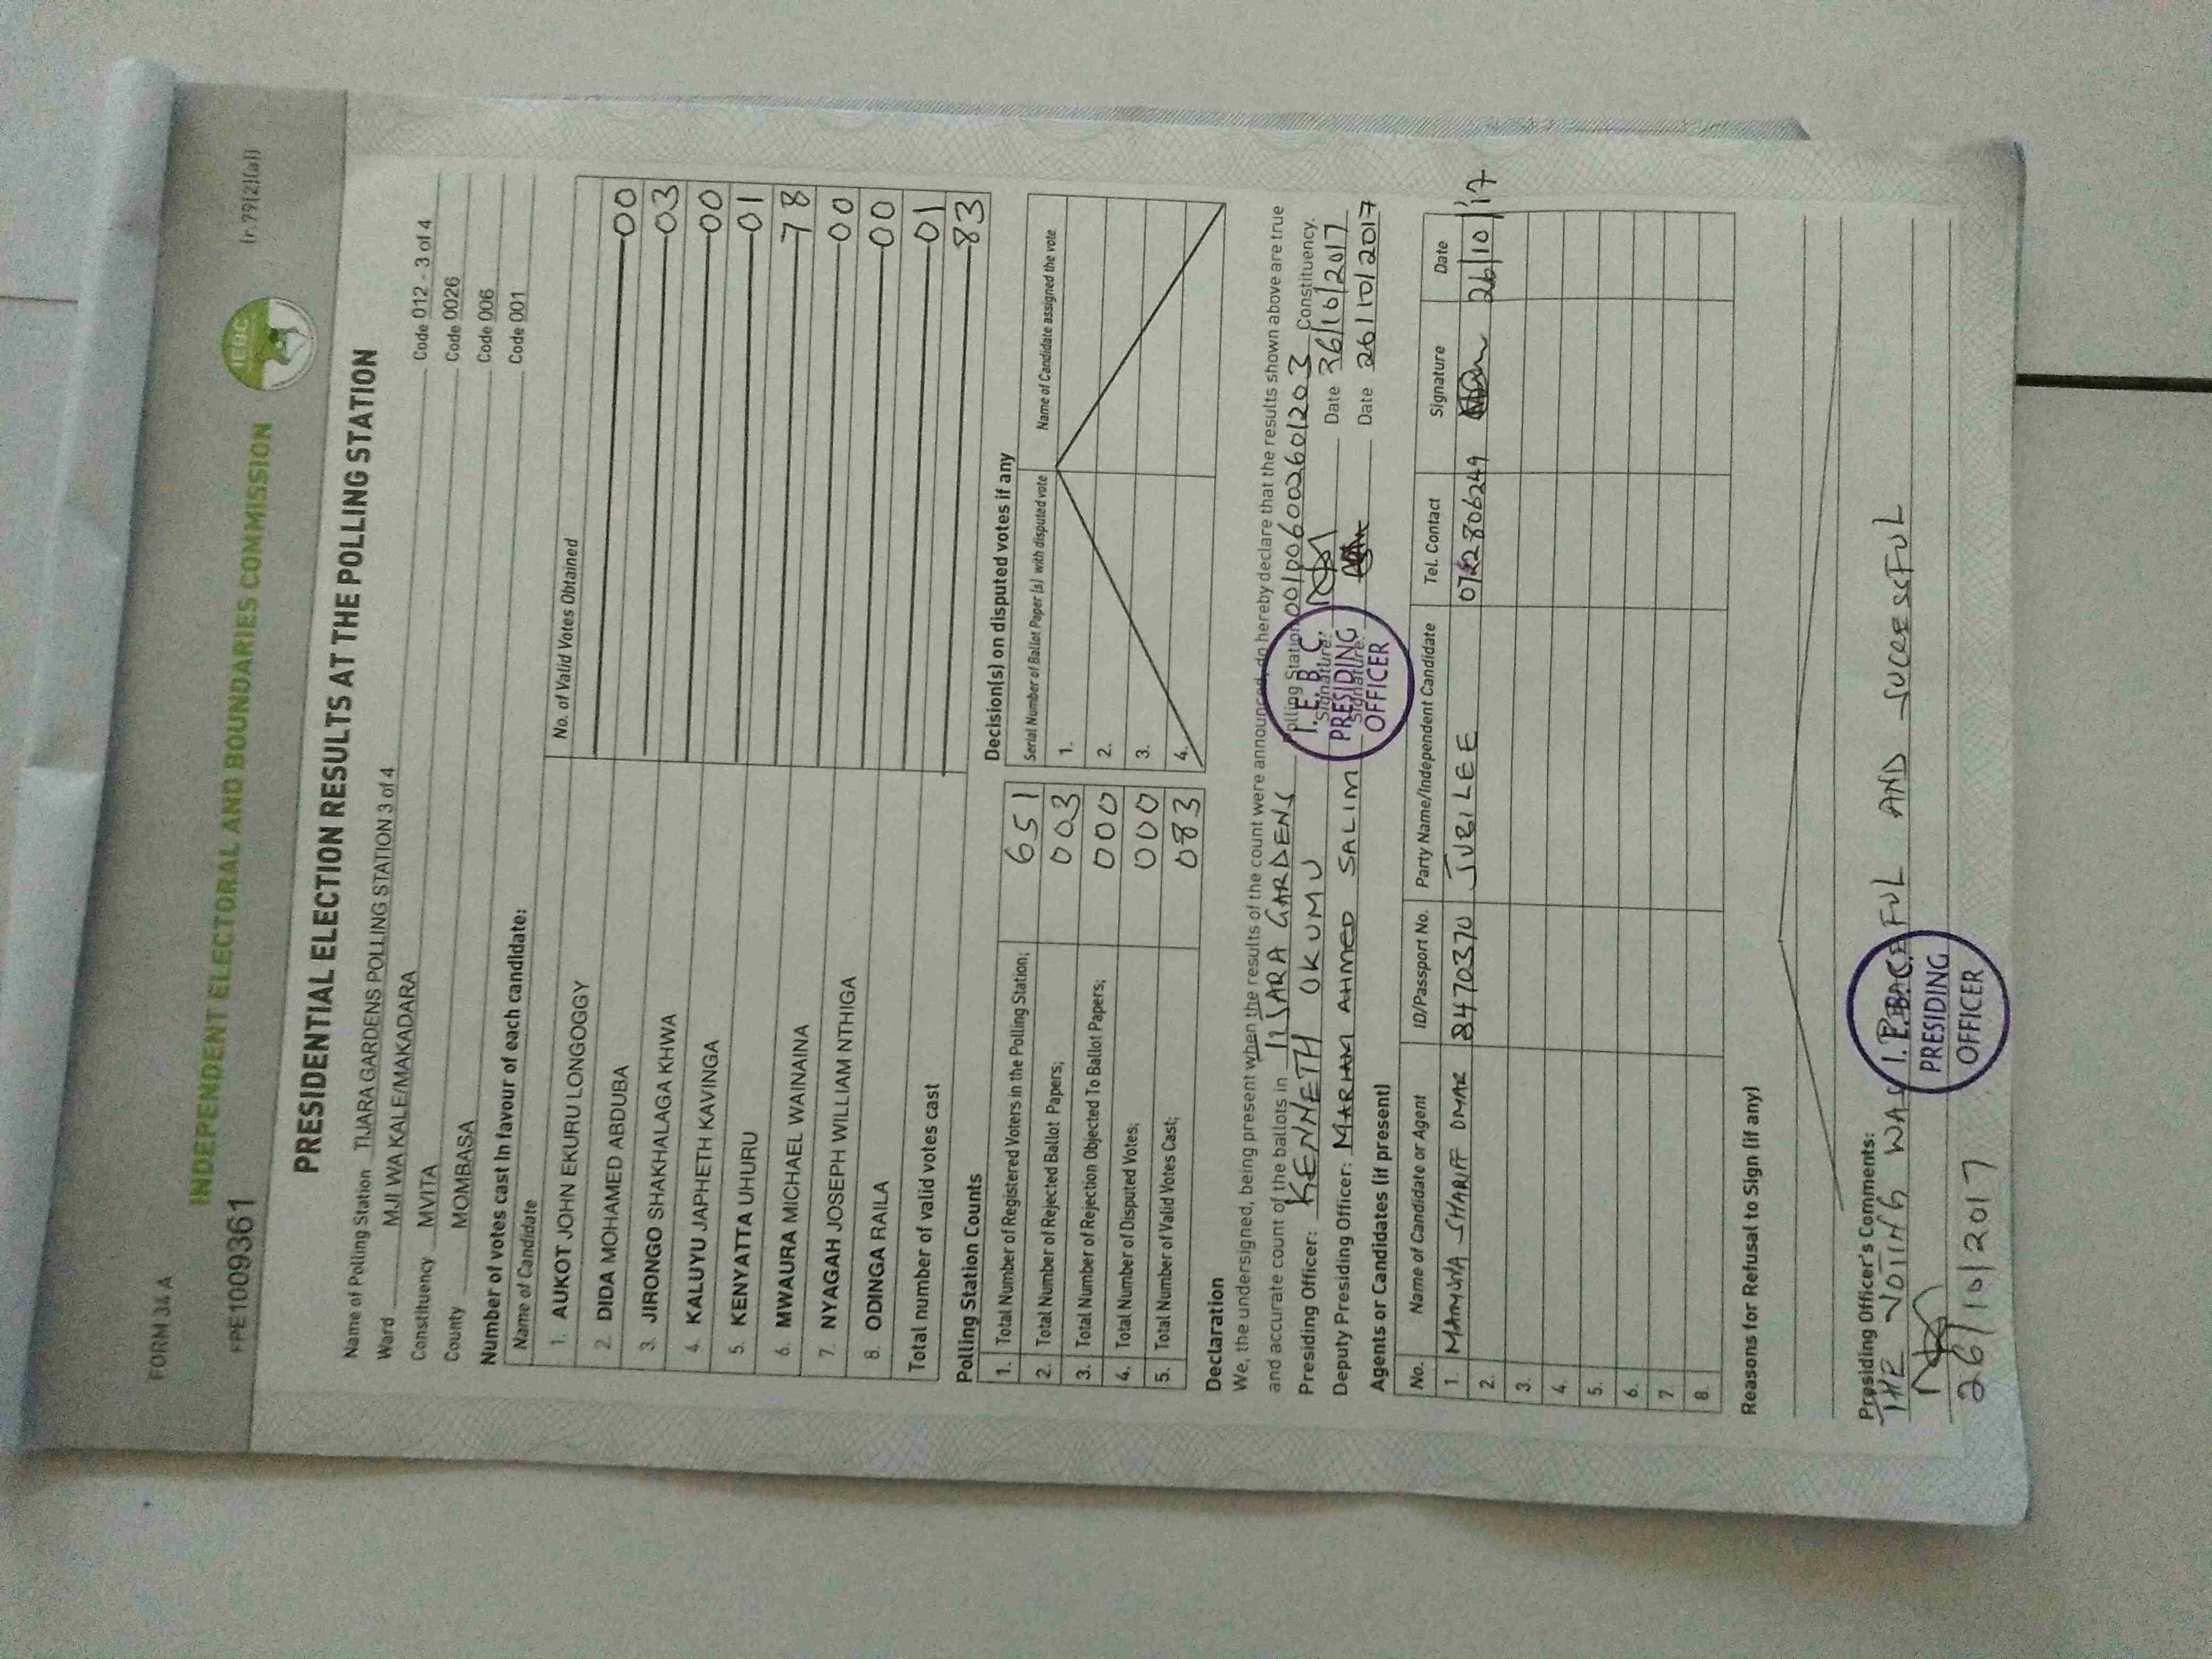 FORM 34 A
(r.79(2)(a))
FPE1009361
IEBC
INDEPENDENT ELECTORAL AND BOUNDARIES COMMISSION
PRESIDENTIAL ELECTION RESULTS AT THE POLLING STATION
Name of Polling Station TIJARA GARDENS POLLING STATION 3 of 4 Code 012 - 3 of 4
Ward MJI WA KALE/MAKADARA Code 0026
Constituency MVITA Code 006
County MOMBASA Code 001
Number of votes cast in favour of each candidate:
Name of Candidate No. of Valid Votes Obtained
1. AUKOT JOHN EKURU LONGOGGY 00
2. DIDA MOHAMED ABDUBA 03
3. JIRONGO SHAKHALAGA KHWA 00
4. KALUYU JAPHETH KAVINGA 01
5. KENYATTA UHURU 78
6. MWAURA MICHAEL WAINAINA 00
7. NYAGAH JOSEPH WILLIAM NTHIGA 00
8. ODINGA RAILA 01
Total number of valid votes cast 83
Polling Station Counts
1. Total Number of Registered Voters in the Polling Station; 651
2. Total Number of Rejected Ballot Papers; 003
3. Total Number of Rejection Objected To Ballot Papers; 000
4. Total Number of Disputed Votes; 000
5. Total Number of Valid Votes Cast; 083
Decision(s) on disputed votes if any
Serial Number of Ballot Paper (s) with disputed vote Name of Candidate assigned the vote
1.
2.
3.
4.
Declaration
We, the undersigned, being present when the results of the count were announced, do hereby declare that the results shown above are true
and accurate count of the ballots in TIJARA GARDENS Polling Station 001006002601203 Constituency.
Presiding Officer: KENNETH OKUMU Signature: Date 26/10/2017
Deputy Presiding Officer: MARIAM AHMED SALIM Signature: Date 26/10/2017
I.E.B.C.
PRESIDING
OFFICER
Agents or Candidates (if present)
No. Name of Candidate or Agent ID/Passport No. Party Name/Independent Candidate Tel. Contact Signature Date
1. MAIMUNA SHARIFF OMAR 8470370 JUBILEE 0722806249 26/10/17
2.
3.
4.
5.
6.
7.
8.
Reasons for Refusal to Sign (if any)
Presiding Officer's Comments:
THE VOTING WAS PEACEFUL AND SUCCESSFUL
26/10/2017
I.E.B.C.
PRESIDING
OFFICER